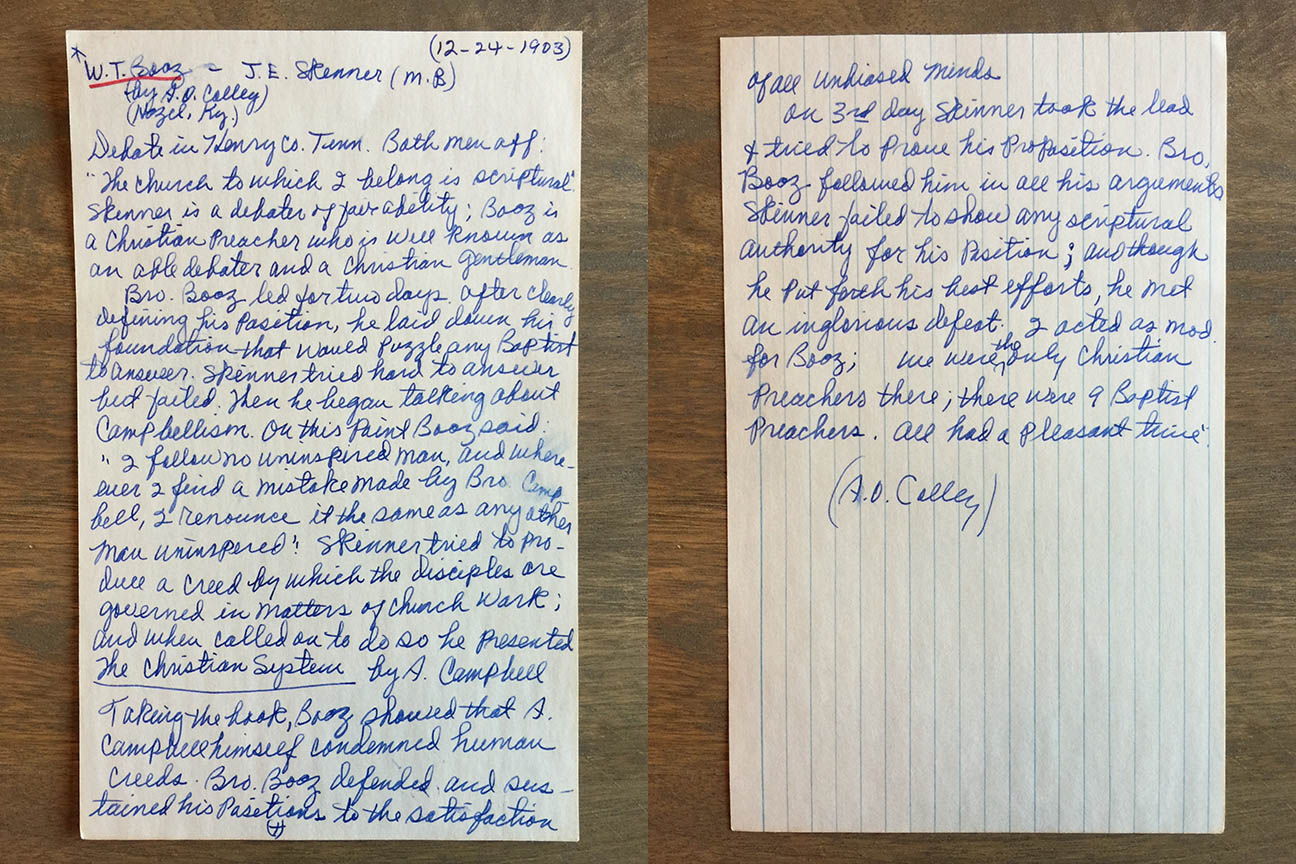 (12-24-1903)
W.T. Booz - J.E. Skenner (M.B)
(by A.O. Colley)
(Hazel, Ky.)
Debate in Henry Co. Tenn. Both men aff:
"The church to which I belong is scriptural"
Skenner is a debater of fair ability; Booz is
a Christian Preacher who is well known as
an able debater and a Christian gentleman
Bro. Booz led for two days. After clearly
defining his Position, he laid down his
foundation that would puzzle any Baptist
to answer. Skenner tried hard to answer
but failed. Then he began talking about
Campbellism. On this Point Booz said:
"I follow no uninspired man, and where-
ever I find a mistake made by Bro. Camp
bell, I renounce it the same as any other
man uninspered". Skenner tried to pro-
duce a creed by which the disciples are
governed in matters of church work;
and when called on to do so he presented
The Christian System by A. Campbell
Taking the book, Booz showed that A.
Campbell himself condemned human
creeds. Bro. Booz defended and sus-
tained his Positions to the satisfaction
of all unbiased minds
On 3rd day Skenner took the lead
& tried to prove his Proposition. Bro.
Booz followed him in all his arguments
Skinner failed to show any scriptural
authority for his Position; and though
he put forth his best efforts, he met
an inglorious defeat. I acted as mod.
for Booz; we were the only Christian
Preachers there; there were 9 Baptist
Preachers. All had a pleasant time".
(A.O. Colley)